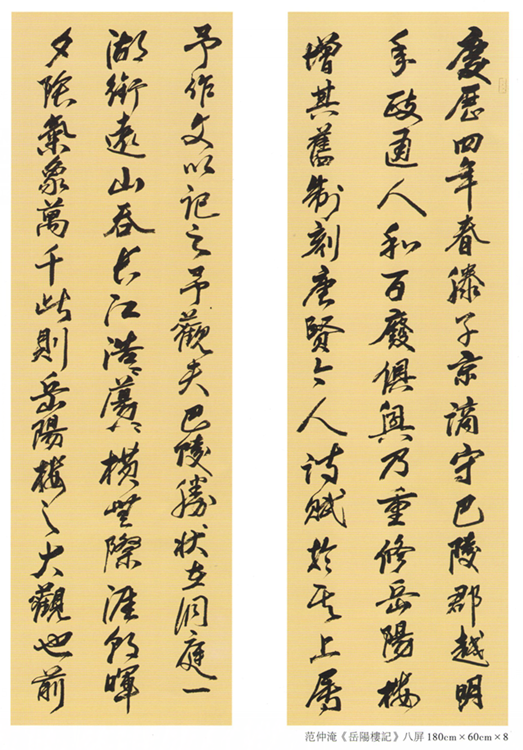 慶曆四年春滕子京謫守巴陵郡越明
年政通人和百廢俱興乃重修岳陽樓
增其舊制刻唐賢今人詩賦於其上屬
予作文以記之予觀夫巴陵勝狀在洞庭一
湖銜遠山吞長江浩浩蕩蕩橫無際涯朝暉
夕陰氣象萬千此則岳陽樓之大觀也前
范仲淹《岳陽樓記》八屏 180cm×60cm×8